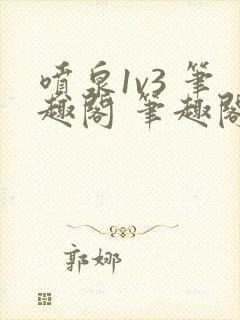 噴泉1v3 筆
趣閣 筆趣閣
郭娜